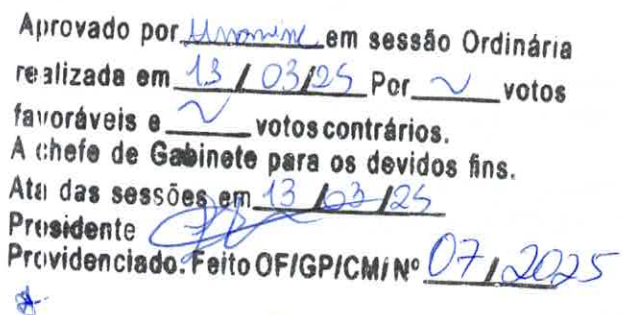 Aprovado por Unanime em sessão Ordinária
realizada em 13 / 03/25 Por votos
favoráveis e votos contrários.
A chefe de Gabinete para os devidos fins.
Ata das sessões em 13 / 03 / 25
Presidente
Providenciado. Feito OF/GP/CM/ Nº 07 / 2025